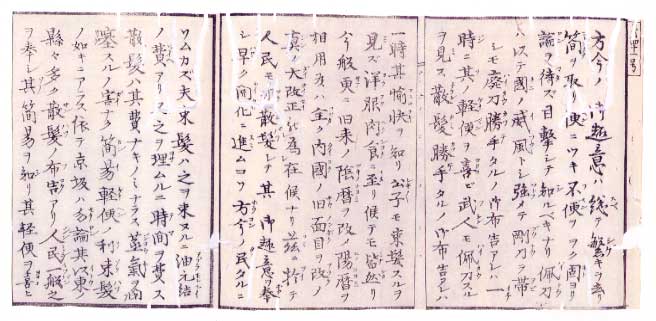 方今ノ御趣意ハ総テ繁キヲ去リ
簡ヲ取リ便ニツキ不便ヲヲク固ヨリ
論ヲ待ズ目撃シテ知ルベキナリ佩刀
以テ國ノ威風トシ強メテ剛刀ヲ帯
シモ廃刀勝手タルノ御布告アレハ一
時ニ其ノ軽便ヲ喜ビ武人モ佩刀スル
ヲ見ズ散髪勝手タルノ御布告アレハ
一時其愉快ヲ知リ公子モ束髪スルヲ
見ズ洋服肉食ニ至リ候テモ皆然リ
今般更ニ旧来ノ陰暦ヲ改メ陽暦ヲ
相用ヰハ全ク内國ノ旧面目ヲ改ノ
真ノ大改正 為在候ナリ茲ニ於テ
人民モ亦散髪シテ其御趣意ヲ奉
シ早ク開化ニ進ムコソ方今ノ民タルニ
ソムカズ夫束髪ハ之ヲ束ヌルニ油元結
ノ費アリ又之ヲ理ムルニ時間ヲ費ス
散髪ハ其費ナキノミナラス蒸氣ヲ
塞スルノ害ナク簡易軽便ノ利束髪
ノ如キニアラス依テ京坂ハ勿論其以東ノ
縣々多ク散髪ノ布告アリ人民一般之
ヲ奉シ其簡易ヲ知リ其軽便ヲ喜ヒ